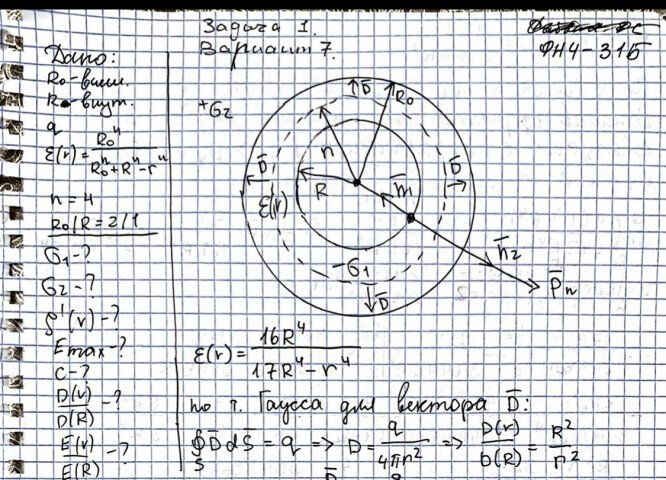 Задача 1.
Вариант 7.
ФН4-31Б
Дано:
R₀-внеш.
R-внут.
q
ε(r) = R₀ⁿ / (R₀ⁿ + Rⁿ - rⁿ)
n = 4
R₀/R = 2/1
σ₁-?
σ₂-?
ρ'(r)-?
Emax-?
C-?
D(r)/D(R) -?
E(r)/E(R) -?
+σ₂
D̅
R₀
r
D̅
D̅
R
ε(r)
n̅₁
-σ₁
n̅₂
P̅n
D̅
ε(r) = 16R⁴ / (17R⁴ - r⁴)
по т. Гаусса для вектора D̅:
∮ₛ D̅ dS̅ = q => D = q / 4πr² => D(r)/D(R) = R²/r²